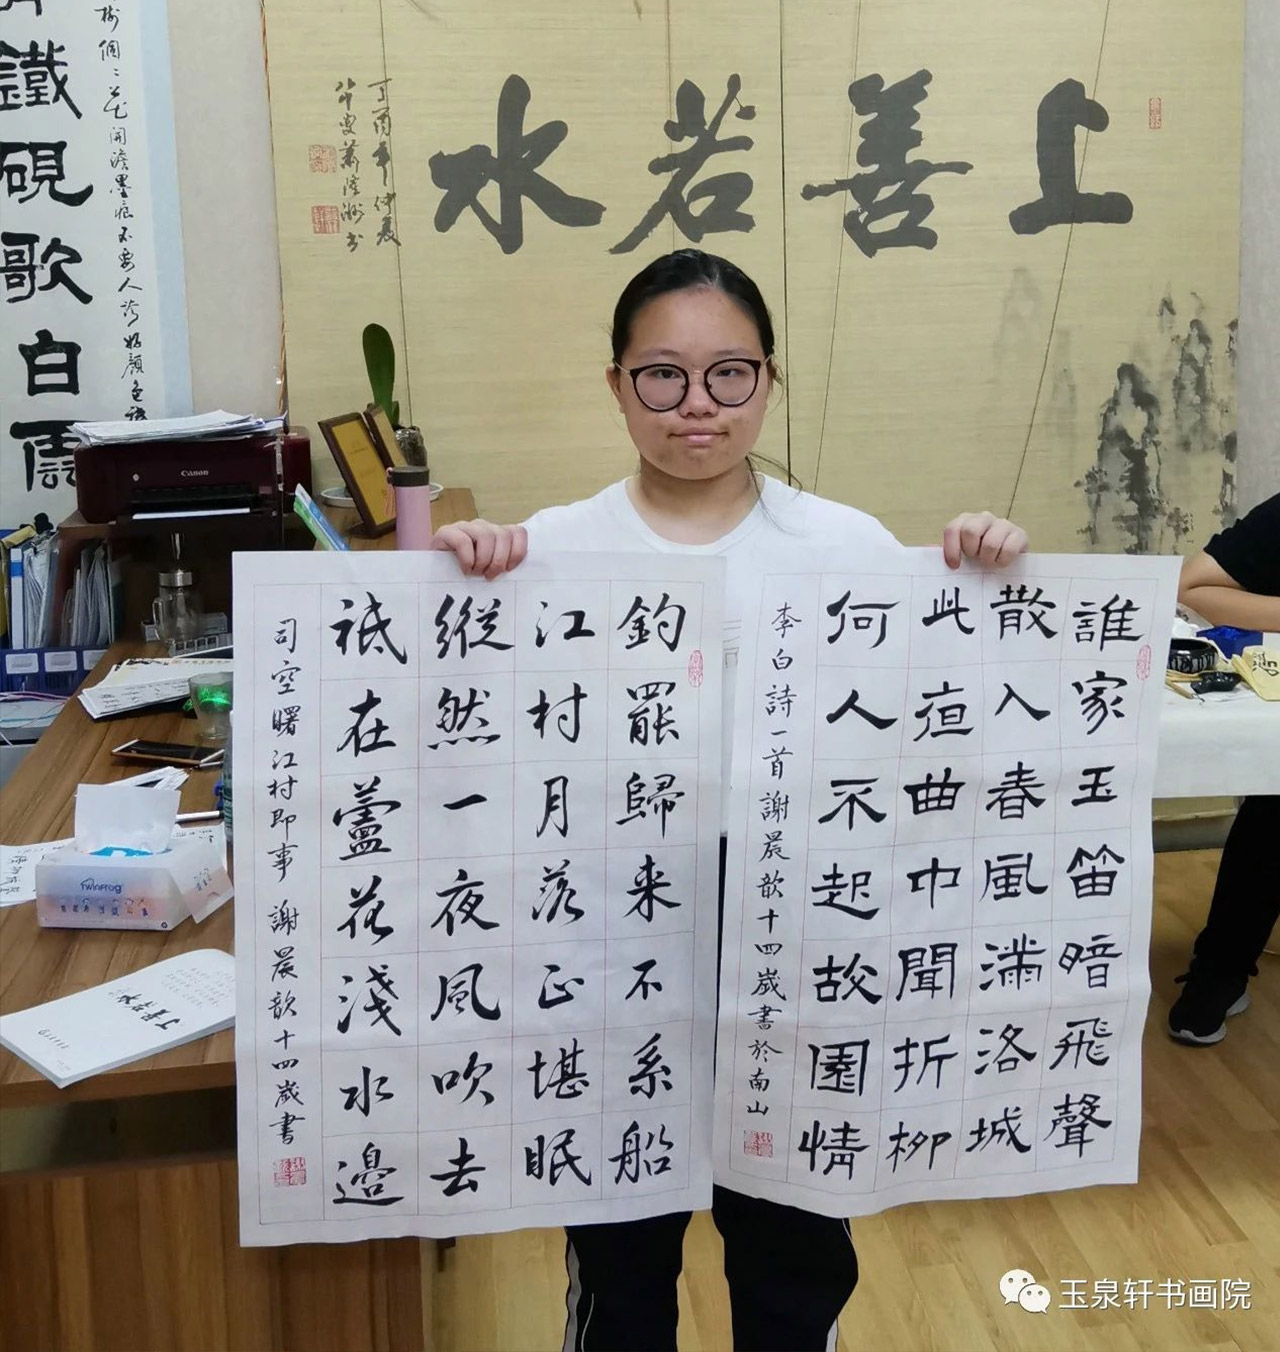 上善若水
丁酉年仲夏
鐵硯歌白雲
個個花開淡墨痕不要人誇好顏色
Canon
誰家玉笛暗飛聲
散入春風滿洛城
此夜曲中聞折柳
何人不起故園情
李白詩一首謝晨歆十四歲書於南山
釣罷歸来不系船
江村月落正堪眠
縱然一夜風吹去
祇在蘆花淺水邊
司空曙江村即事 謝晨歆十四歲書
Twinfrog
玉泉轩书画院